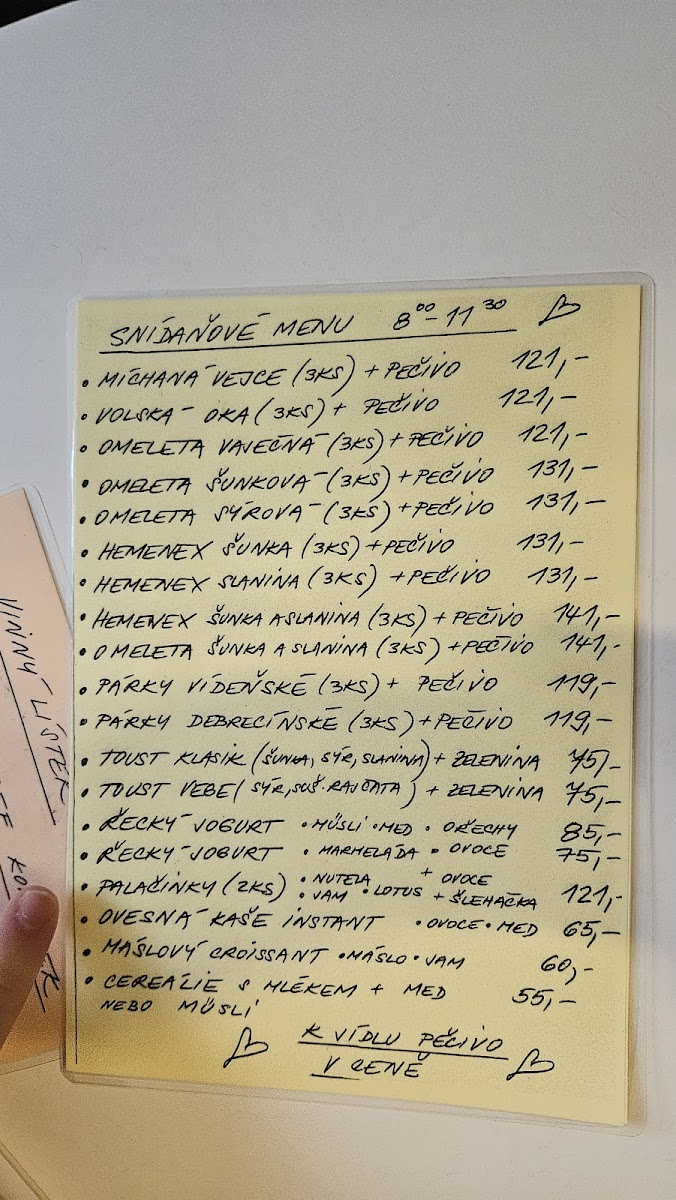 SNÍDAŇOVÉ MENU 8⁰⁰-11³⁰
• MÍCHANÁ VEJCE (3KS) + PEČIVO 121,-
• VOLSKÁ OKA (3KS) + PEČIVO 121,-
• OMELETA VAJEČNÁ (3KS) + PEČIVO 121,-
• OMELETA ŠUNKOVÁ (3KS) + PEČIVO 131,-
• OMELETA SÝROVÁ (3KS) + PEČIVO 131,-
• HEMENEX ŠUNKA (3KS) + PEČIVO 131,-
• HEMENEX SLANINA (3KS) + PEČIVO 131,-
• HEMENEX ŠUNKA A SLANINA (3KS) + PEČIVO 141,-
• OMELETA ŠUNKA A SLANINA (3KS) + PEČIVO 141,-
• PÁRKY VÍDEŇSKÉ (3KS) + PEČIVO 119,-
• PÁRKY DEBRECÍNSKÉ (3KS) + PEČIVO 119,-
• TOUST KLASIK (ŠUNKA, SÝR, SLANINA) + ZELENINA 75,-
• TOUST VEGE (SÝR, SUŠ. RAJČATA) + ZELENINA 75,-
• ŘECKÝ JOGURT • MÜSLI • MED • OŘECHY 85,-
• ŘECKÝ JOGURT • MARMELÁDA • OVOCE 75,-
• PALAČINKY (2KS) • NUTELA + OVOCE
• JAM • LOTUS + ŠLEHAČKA 121,-
• OVESNÁ KAŠE INSTANT • OVOCE • MED 65,-
• MÁSLOVÝ CROISSANT • MÁSLO • JAM 60,-
• CEREÁLIE S MLÉKEM + MED 55,-
NEBO MÜSLI
K JÍDLU PEČIVO
V CENĚ
VINNÝ LÍSTEK